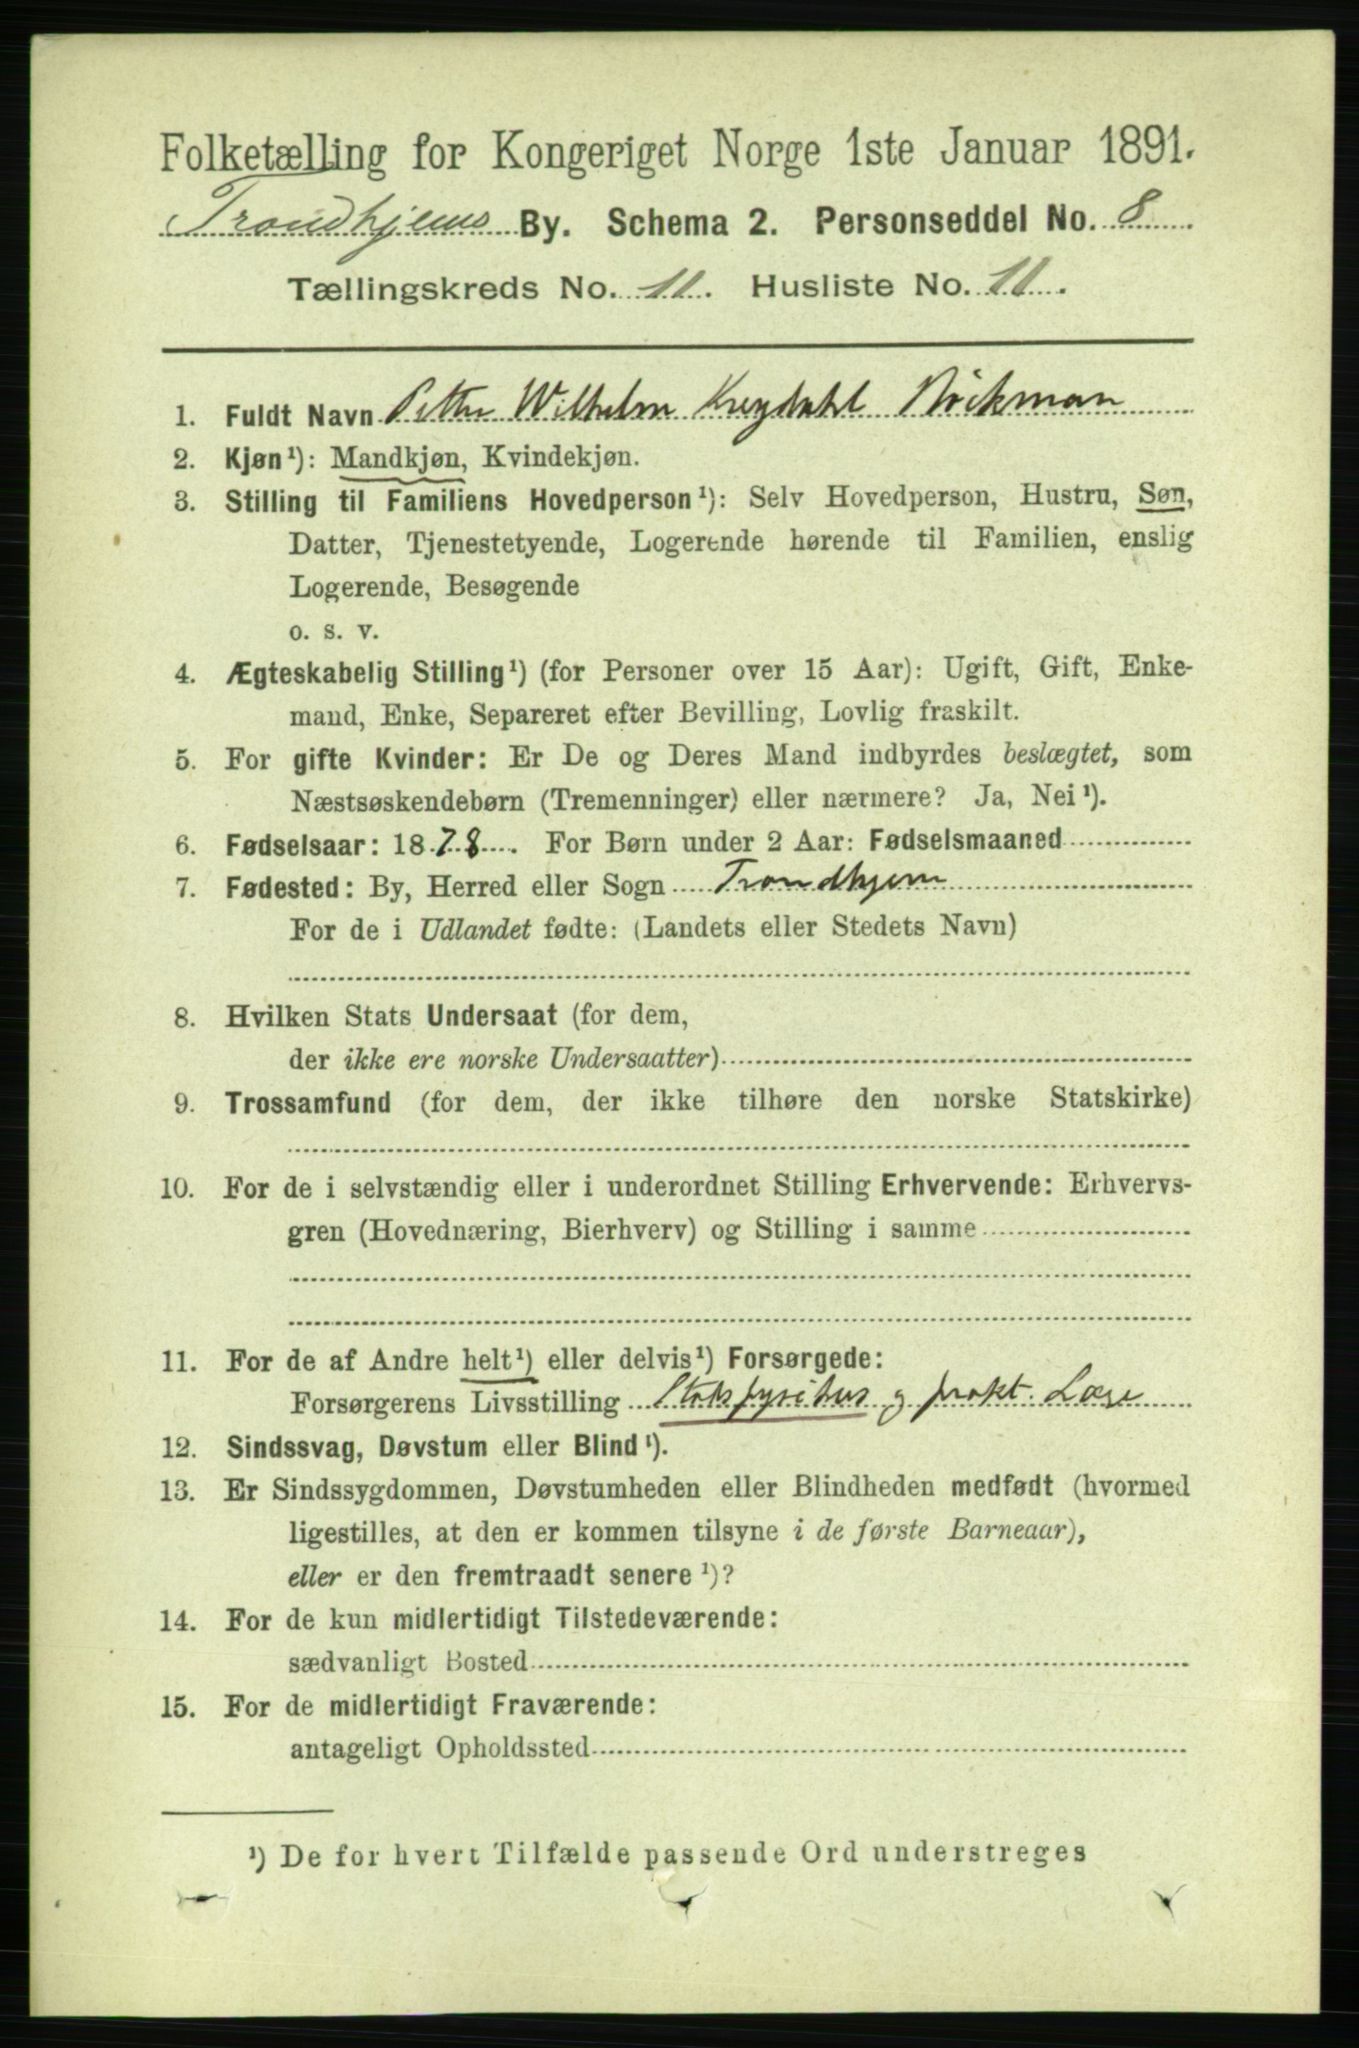 Folketælling for Kongeriget Norge 1ste Januar 1891.
Trondhjems By. Schema 2. Personseddel No. 8
Tællingskreds No. 11. Husliste No. 11.
1. Fuldt Navn Petter Wilhelm Kreydahl Böckman
2. Kjøn¹): Mandkjøn, Kvindekjøn.
3. Stilling til Familiens Hovedperson¹): Selv Hovedperson, Hustru, Søn,
Datter, Tjenestetyende, Logerende hørende til Familien, enslig
Logerende, Besøgende
o. s. v.
4. Ægteskabelig Stilling¹) (for Personer over 15 Aar): Ugift, Gift, Enke-
mand, Enke, Separeret efter Bevilling, Lovlig fraskilt.
5. For gifte Kvinder: Er De og Deres Mand indbyrdes beslægtet, som
Næstsøskendebørn (Tremenninger) eller nærmere? Ja, Nei¹).
6. Fødselsaar: 1878. For Børn under 2 Aar: Fødselsmaaned
7. Fødested: By, Herred eller Sogn Trondhjem
For de i Udlandet fødte: (Landets eller Stedets Navn)
8. Hvilken Stats Undersaat (for dem,
der ikke ere norske Undersaatter)
9. Trossamfund (for dem, der ikke tilhøre den norske Statskirke)
10. For de i selvstændig eller i underordnet Stilling Erhvervende: Erhvervs-
gren (Hovednæring, Bierhverv) og Stilling i samme
11. For de af Andre helt¹) eller delvis¹) Forsørgede:
Forsørgerens Livsstilling Stadsfysikus og prakt. Læge
12. Sindssvag, Døvstum eller Blind¹).
13. Er Sindssygdommen, Døvstumheden eller Blindheden medfødt (hvormed
ligestilles, at den er kommen tilsyne i de første Barneaar),
eller er den fremtraadt senere¹)?
14. For de kun midlertidigt Tilstedeværende:
sædvanligt Bosted
15. For de midlertidigt Fraværende:
antageligt Opholdssted
¹) De for hvert Tilfælde passende Ord understreges